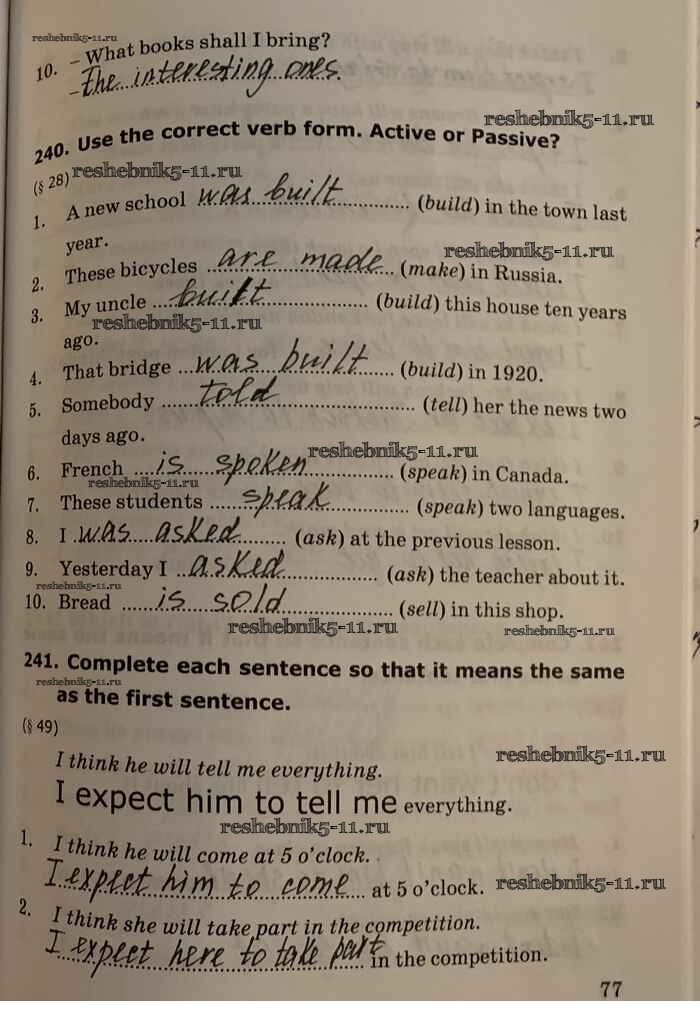 reshebnik5-11.ru
– What books shall I bring?
10. – The interesting ones.
reshebnik5-11.ru
240. Use the correct verb form. Active or Passive?
(§ 28) reshebnik5-11.ru
1. A new school was built (build) in the town last
year. reshebnik5-11.ru
2. These bicycles are made (make) in Russia.
3. My uncle built (build) this house ten years
reshebnik5-11.ru
ago.
4. That bridge was built (build) in 1920.
5. Somebody told (tell) her the news two
days ago. reshebnik5-11.ru
6. French is spoken (speak) in Canada.
reshebnik5-11.ru
7. These students speak (speak) two languages.
8. I was asked (ask) at the previous lesson.
9. Yesterday I asked (ask) the teacher about it.
reshebnik5-11.ru
10. Bread is sold (sell) in this shop.
reshebnik5-11.ru reshebnik5-11.ru
241. Complete each sentence so that it means the same
reshebnik5-11.ru
as the first sentence.
(§ 49)
reshebnik5-11.ru
I think he will tell me everything.
I expect him to tell me everything.
reshebnik5-11.ru
1. I think he will come at 5 o'clock.
I expect him to come at 5 o'clock. reshebnik5-11.ru
2. I think she will take part in the competition.
I expect here to take part in the competition.
77